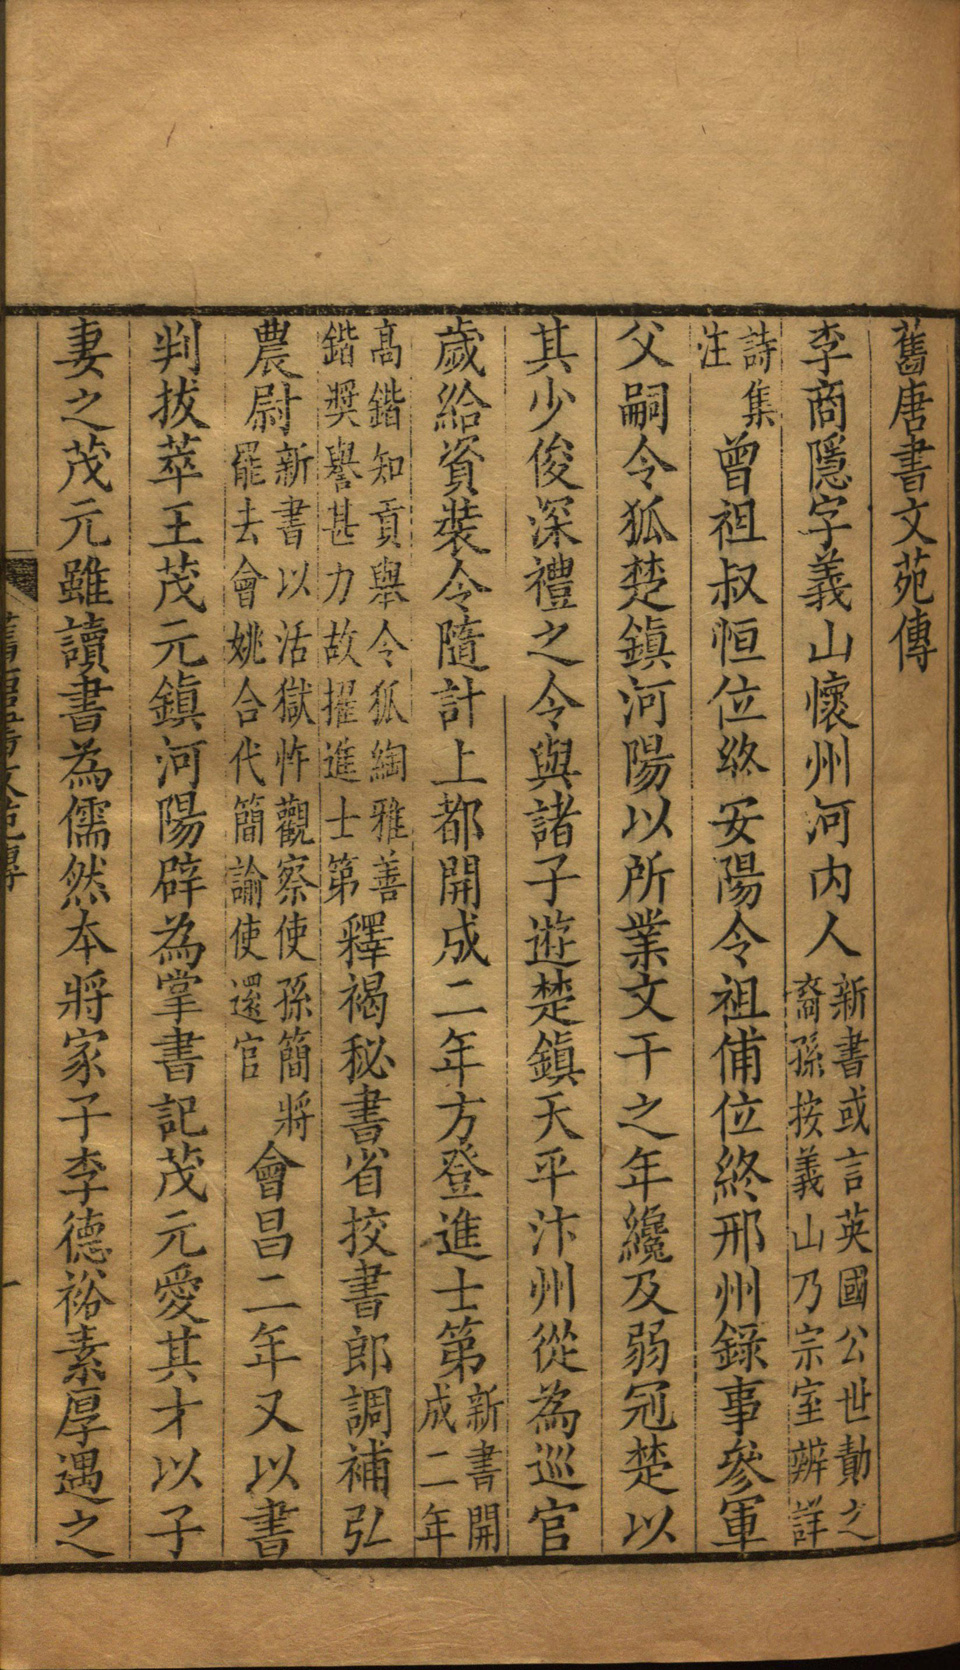 舊唐書文苑傳
李商隱字義山懷州河内人新書或言英國公世勣之裔孫按義山乃宗室辨詳
詩集注曾祖叔恒位終安陽令祖俌位終邢州錄事參軍
父嗣令狐楚鎮河陽以所業文干之年纔及弱冠楚以
其少俊深禮之令與諸子遊楚鎮天平汴州從為巡官
歲給資裝令隨計上都開成二年方登進士第新書開成二年
高鍇知貢舉令狐綯雅善鍇獎譽甚力故擢進士第釋褐秘書省挍書郎調補弘
農尉新書以活獄忤觀察使孫簡將罷去會姚合代簡諭使還官會昌二年又以書
判拔萃王茂元鎮河陽辟為掌書記茂元愛其才以子
妻之茂元雖讀書為儒然本將家子李德裕素厚遇之
舊唐書文苑傳
一